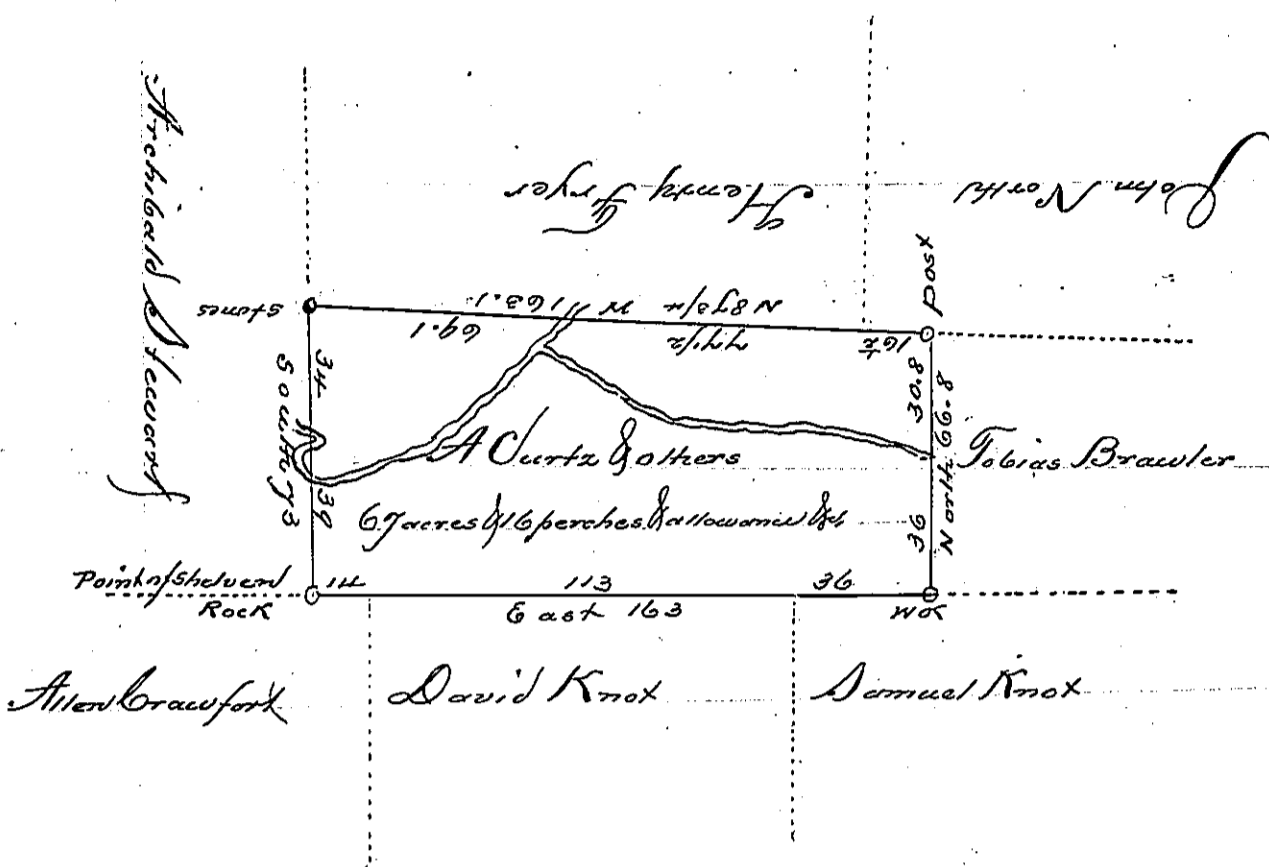 Archibald Stewart
Henry Fryer
John North
Stones
Post
N 87 3/4 W 163.1
69.1
77 1/2
16 1/2
34
South 73
39
30.8
North 66.8
36
A Curtz & others
67 acres & 16 perches & allowance &c
Tobias Brawler
Point of Shelven
Rock
14
113
36
East 163
WO
Allen Crawfork
David Knox
Samuel Knox